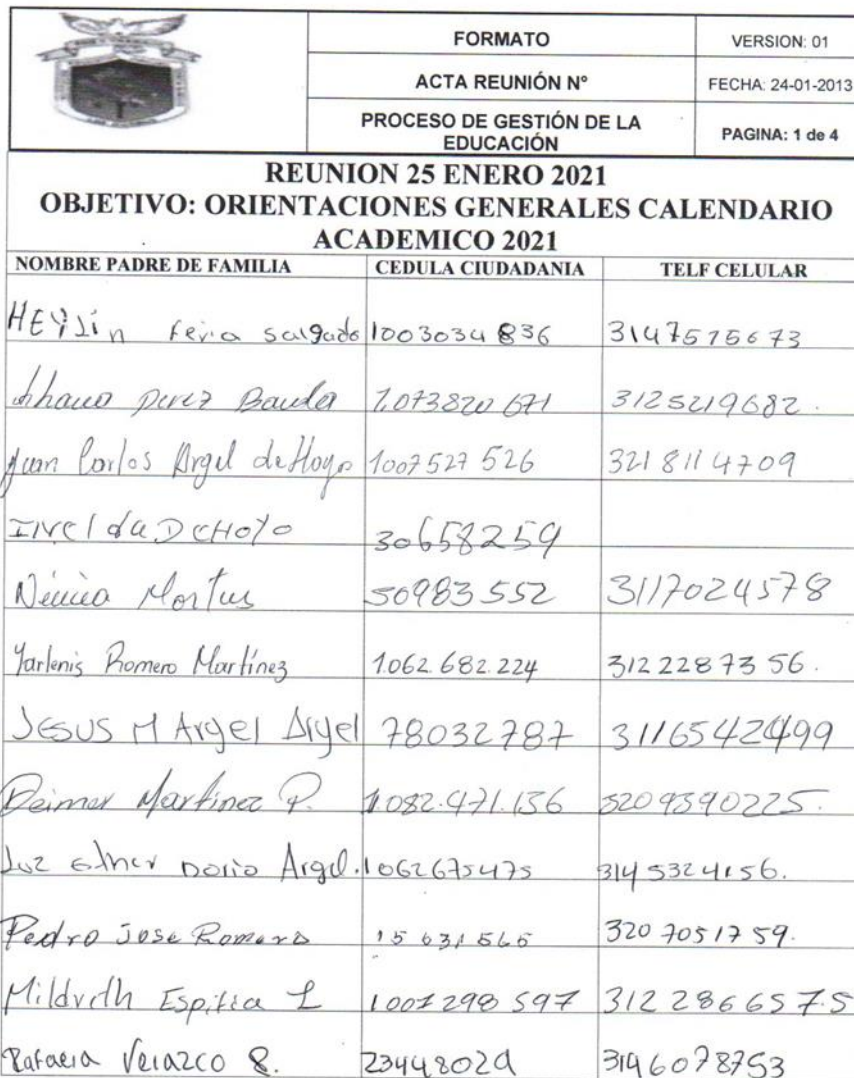 FORMATO
VERSION: 01
ACTA REUNIÓN N°
FECHA: 24-01-2013
PROCESO DE GESTIÓN DE LA
EDUCACIÓN
PAGINA: 1 de 4
REUNION 25 ENERO 2021
OBJETIVO: ORIENTACIONES GENERALES CALENDARIO
ACADEMICO 2021
NOMBRE PADRE DE FAMILIA CEDULA CIUDADANIA TELF CELULAR
HEYLin feria salgado 1003034836 3147575673
perez 1.073820671 3125219682.
Juan Carlos Argel de Hoyo 1007527526 3218114709
DeHoyo 30658259
50983552 3117024578
Yarlenis Romero Martínez 1.062.682.224 3122287356.
JESUS M Argel Argel 78032787 3116542499
Deimer Martinez P. 1.082.471.136 3209390225.
Luz Dorio Argel. 1062675475 3145324156.
Pedro Jose Romero 320 7051759.
Mildreth Espitia L 312 286657.5
Rafaela Velazco 3146078753